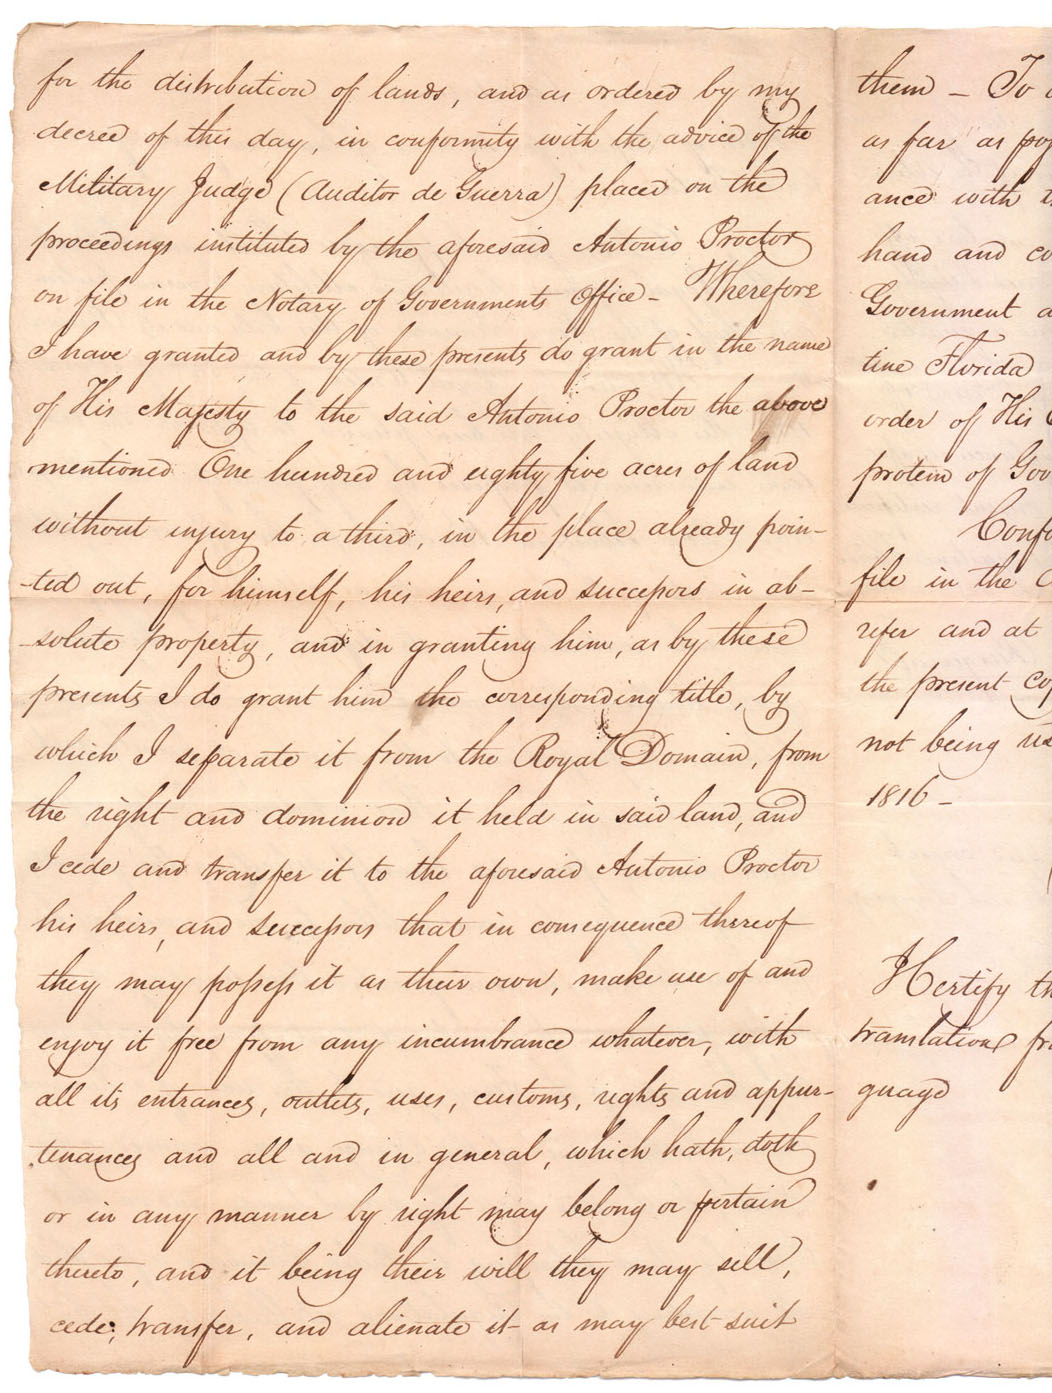 for the distribution of lands, and as ordered by my
decree of this day, in conformity with the advice of the
Military Judge (Auditor de Guerra) placed on the
proceedings instituted by the aforesaid Antonio Proctor
on file in the Notary of Governments Office - Wherefore
I have granted and by these presents do grant in the name
of His Majesty to the said Antonio Proctor the above
mentioned One hundred and eighty five acres of land
without injury to a third, in the place already poin-
-ted out, for himself, his heirs, and successors in ab-
-solute property, and in granting him, as by these
presents I do grant him the corresponding title, by
which I separate it from the Royal Domain, from
the right and dominion it held in said land, and
I cede and transfer it to the aforesaid Antonio Proctor
his heirs, and successors that in consequence thereof
they may possess it as their own, make use of and
enjoy it free from any incumbrance whatever, with
all its entrances, outlets, uses, customs, rights and appur-
tenances and all and in general, which hath, doth
or in any manner by right may belong or pertain
thereto, and it being their will they may sell,
cede, transfer, and alienate it as may best suit
them - To
as far as
ance with
hand and
Government
tine Florida
order of His
protem of
file in the
refer and at
the present
not being
1816 -
Certify
translation
guage